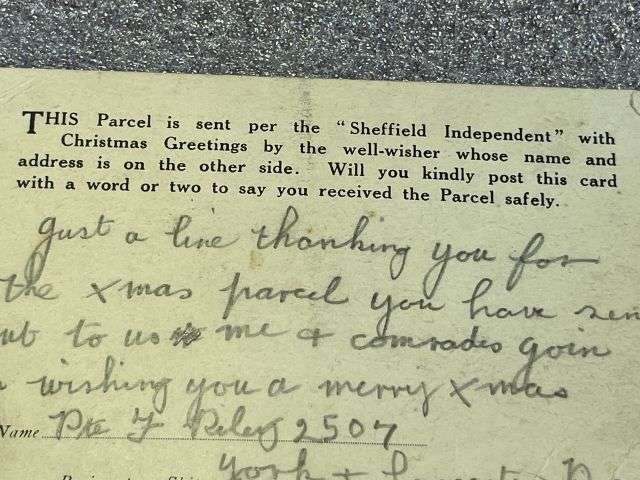 THIS Parcel is sent per the "Sheffield Independent" with
Christmas Greetings by the well-wisher whose name and
address is on the other side. Will you kindly post this card
with a word or two to say you received the Parcel safely.
Just a line thanking you for
the xmas parcel you have sen
to us me & comrades goin
wishing you a merry xmas
Name Pte F Riley 2507
York &